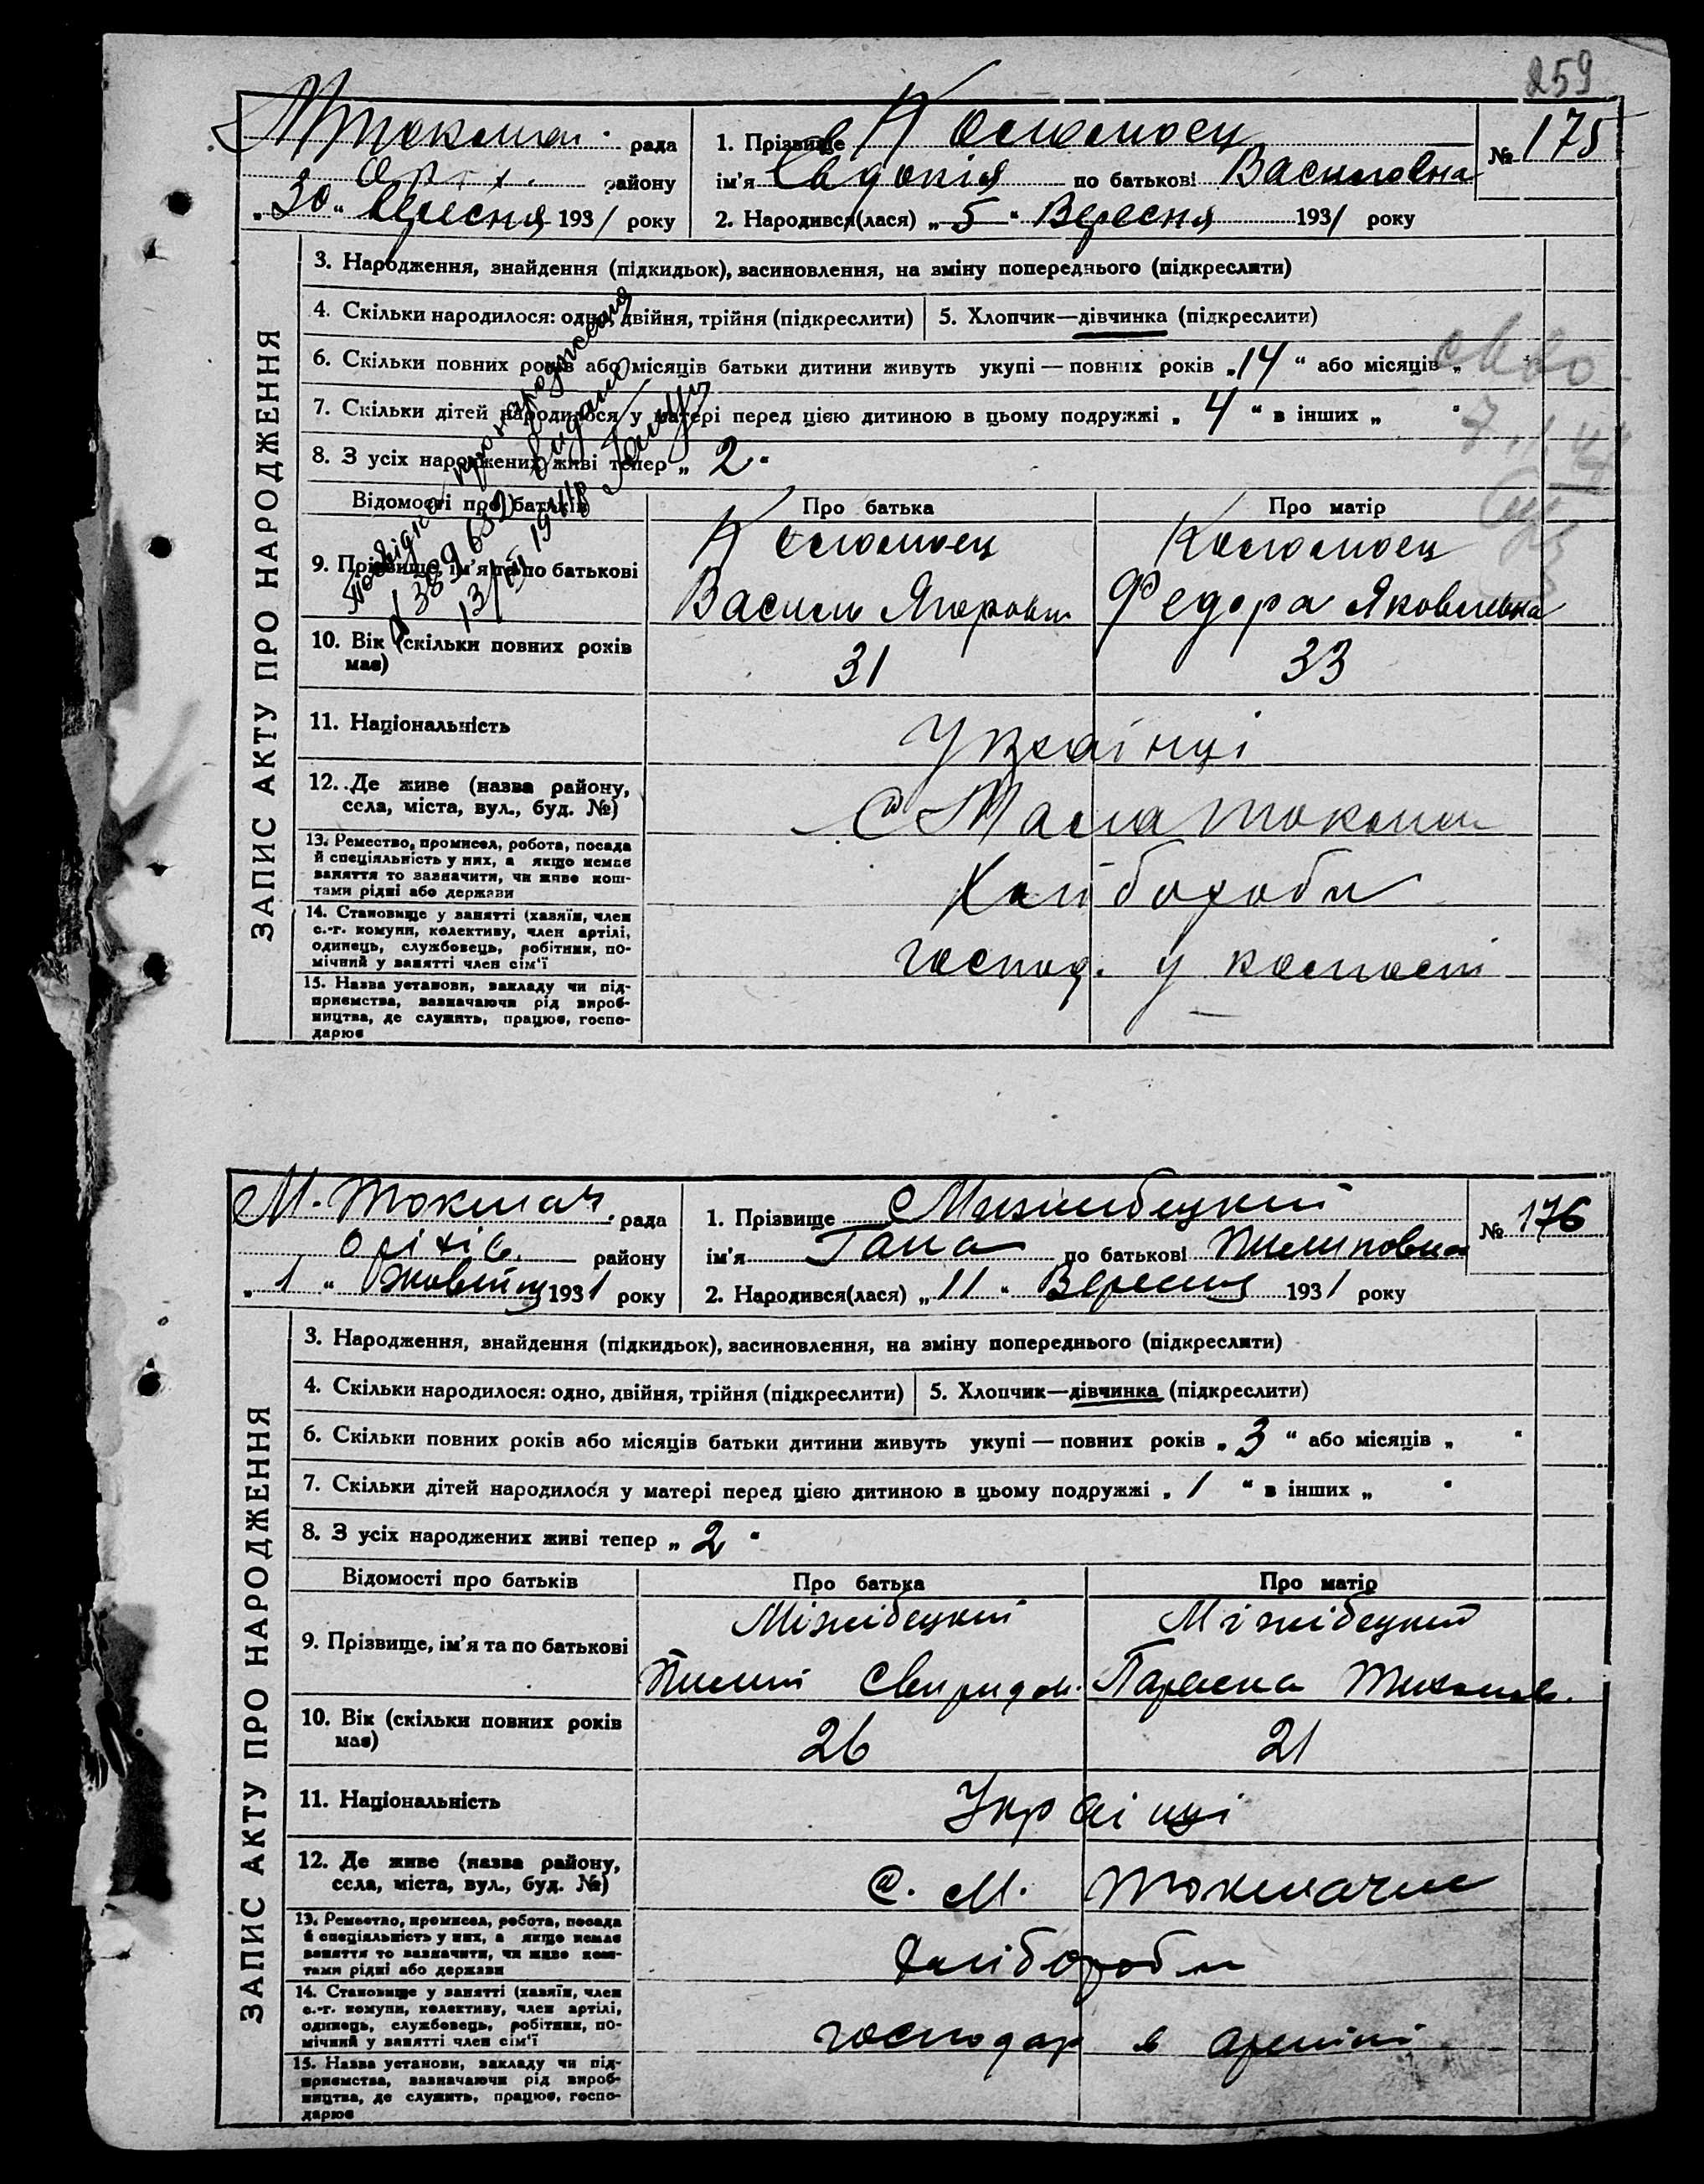 259
М Токмач. рада
Оріх. району
„30“ вересня 1931 року
1. Прізвище Коломоец
ім'я Євдокія по батькові Василовна
2. Народився(лася) „5“ Вересня 1931 року
№ 175
ЗАПИС АКТУ ПРО НАРОДЖЕННЯ
3. Народження, знайдення (підкидьок), засиновлення, на зміну попереднього (підкреслити)
4. Скільки народилося: одно, двійня, трійня (підкреслити)
5. Хлопчик—дівчинка (підкреслити)
6. Скільки повних років або місяців батьки дитини живуть укупі — повних років „14“ або місяців „
7. Скільки дітей народилося у матері перед цією дитиною в цьому подружжі „4“ в інших „ “
8. З усіх народжених живі тепер „2“
Відомості про батьків
Про батька
Про матір
9. Прізвище, ім'я та по батькові
Коломоец
Василь
Коломоец
Федора Яковлевна
10. Вік (скільки повних років має)
31
33
11. Національність
Українці
12. Де живе (назва району, села, міста, вул., буд. №)
С Мала токмач
13. Ремество, промисел, робота, посада й спеціяльність у них, а якщо немає заняття то зазначити, чи живе коштами рідні або держави
Хліборобы
14. Становище у занятті (хазяїн, член с.-г. комуни, колективу, член артілі, одинець, службовець, робітник, помічний у занятті член сім'ї
господ. у
15. Назва установи, закладу чи підприємства, зазначаючи рід виробництва, де служить, працює, господарює
М. Токмач. рада
Оріхів. району
„1“ Жовтня 1931 року
1. Прізвище
ім'я Гана по батькові Пилиповна
2. Народився(лася) „11“ Вересня 1931 року
№ 176
ЗАПИС АКТУ ПРО НАРОДЖЕННЯ
3. Народження, знайдення (підкидьок), засиновлення, на зміну попереднього (підкреслити)
4. Скільки народилося: одно, двійня, трійня (підкреслити)
5. Хлопчик—дівчинка (підкреслити)
6. Скільки повних років або місяців батьки дитини живуть укупі — повних років „3“ або місяців „ “
7. Скільки дітей народилося у матері перед цією дитиною в цьому подружжі „1“ в інших „ “
8. З усіх народжених живі тепер „2“
Відомості про батьків
Про батька
Про матір
9. Прізвище, ім'я та по батькові
Пилип Свиридов.
Параска
10. Вік (скільки повних років має)
26
21
11. Національність
Українці
12. Де живе (назва району, села, міста, вул., буд. №)
С. М. Токмачне
13. Ремество, промисел, робота, посада й спеціяльність у них, а якщо немає заняття то зазначити, чи живе коштами рідні або держави
Хлібороби
14. Становище у занятті (хазяїн, член с.-г. комуни, колективу, член артілі, одинець, службовець, робітник, помічний у занятті член сім'ї
господар в артілі
15. Назва установи, закладу чи підприємства, зазначаючи рід виробництва, де служить, працює, господарює